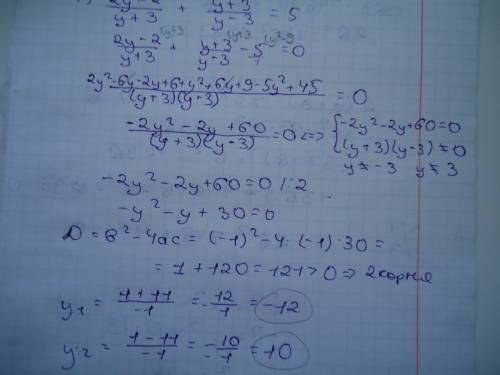 2y-2/y+3 + y+3/y-3 = 5
2y-2/y+3 + y+3/y-3 - 5/1 = 0
2y²-6y-2y+6+y²+6y+9-5y²+45/(y+3)(y-3) = 0
-2y²-2y+60/(y+3)(y-3) = 0 <=> { -2y²-2y+60=0
(y+3)(y-3) ≠ 0
y ≠ -3 y ≠ 3
-2y²-2y+60=0 /:2
-y²-y+30=0
D = в²-4ac = (-1)²-4·(-1)·30 =
= 1+120=121>0 => 2корня
y₁ = 1+11/-1 = -12/1 = -12
y₂ = 1-11/-1 = -10/-1 = 10